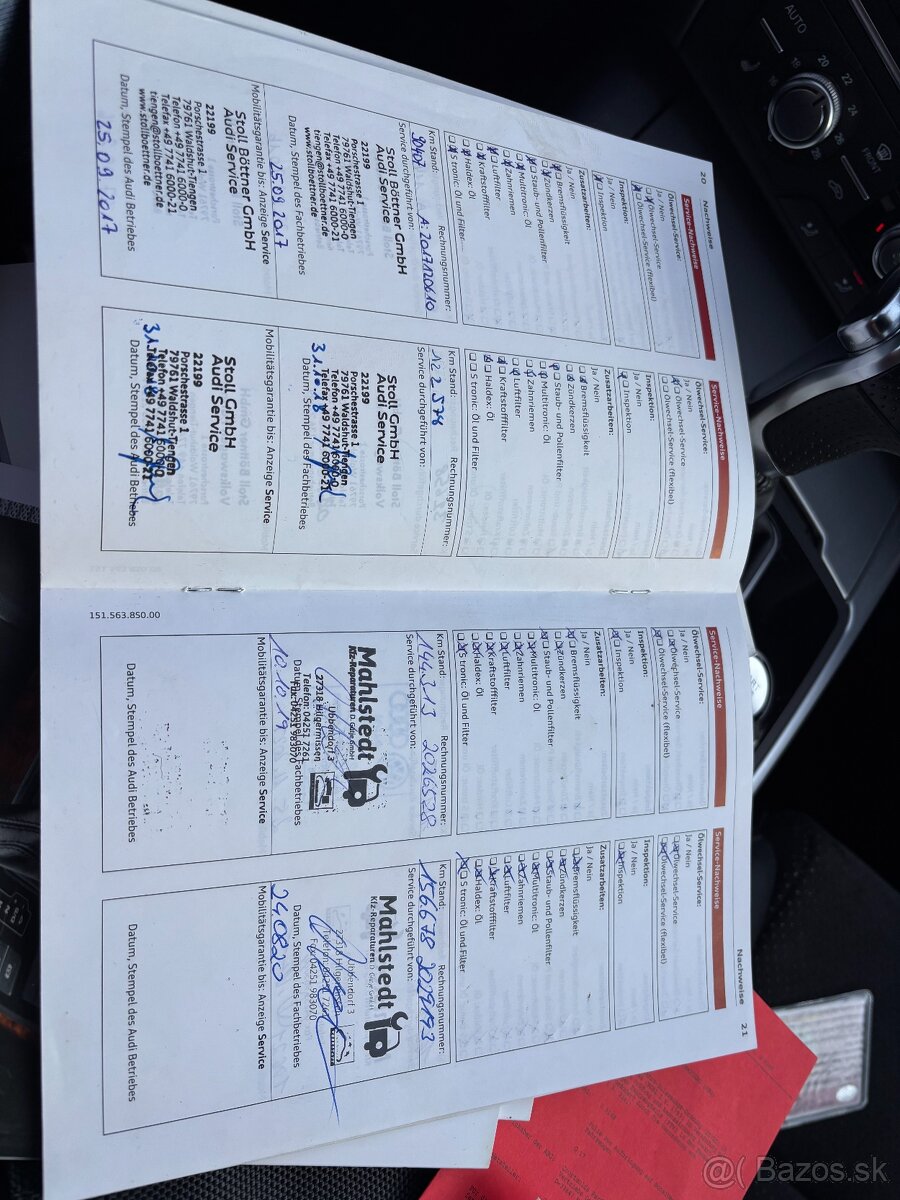 20 Nachweise
Service-Nachweise
Ölwechsel-Service:
Ja / Nein
Ölwechsel-Service
Ölwechsel-Service (flexibel)
Inspektion:
Ja / Nein
Inspektion
Zusatzarbeiten:
Ja / Nein
Bremsflüssigkeit
Zündkerzen
Staub- und Pollenfilter
Multitronic: Öl
Zahnriemen
Luftfilter
Kraftstofffilter
Haldex: Öl
S tronic: Öl und Filter
Km Stand: Rechnungsnummer:
90407 A:2017120610
Service durchgeführt von:
Stoll Böttner GmbH
Audi Service
22199
Porschestrasse 1
79761 Waldshut-Tiengen
Telefon +49 7741 6000-0
Telefax +49 7741 6000-21
tiengen@stollboettner.de
www.stollboettner.de
25.09.2017
Datum, Stempel des Fachbetriebes
Mobilitätsgarantie bis: Anzeige Service
Stoll Böttner GmbH
Audi Service
22199
Porschestrasse 1
79761 Waldshut-Tiengen
Telefon +49 7741 6000-0
Telefax +49 7741 6000-21
tiengen@stollboettner.de
www.stollboettner.de
Datum, Stempel des Audi Betriebes
25.09.2017
Service-Nachweise
Ölwechsel-Service:
Ja / Nein
Ölwechsel-Service
Ölwechsel-Service (flexibel)
Inspektion:
Ja / Nein
Inspektion
Zusatzarbeiten:
Ja / Nein
Bremsflüssigkeit
Zündkerzen
Staub- und Pollenfilter
Multitronic: Öl
Zahnriemen
Luftfilter
Kraftstofffilter
Haldex: Öl
S tronic: Öl und Filter
Km Stand: Rechnungsnummer:
122 578
Service durchgeführt von:
Stoll GmbH
Audi Service
22199
Porschestrasse 1
79761 Waldshut-Tiengen
Telefon +49 7741 6000-0
Telefax +49 7741 6000-21
31.10.18
Datum, Stempel des Fachbetriebes
Mobilitätsgarantie bis: Anzeige Service
Stoll GmbH
Audi Service
22199
Porschestrasse 1
79761 Waldshut-Tiengen
Telefon +49 7741 6000-0
Datum, Stempel des Audi Betriebes
151.563.850.00
Service-Nachweise
Ölwechsel-Service:
Ja / Nein
Ölwechsel-Service
Ölwechsel-Service (flexibel)
Inspektion:
Ja / Nein
Inspektion
Zusatzarbeiten:
Ja / Nein
Bremsflüssigkeit
Zündkerzen
Staub- und Pollenfilter
Multitronic: Öl
Zahnriemen
Luftfilter
Kraftstofffilter
Haldex: Öl
S tronic: Öl und Filter
Km Stand: Rechnungsnummer:
144.313 2026528
Service durchgeführt von:
Mahlstedt
Kfz-Reparaturen
GmbH
Ubbendorf 3
27318 Hilgermissen
Telefon: 04251 7261
Fax: 04251 983070
Datum, Stempel des Fachbetriebes
10.10.19
Mobilitätsgarantie bis: Anzeige Service
Datum, Stempel des Audi Betriebes
Nachweise 21
Service-Nachweise
Ölwechsel-Service:
Ja / Nein
Ölwechsel-Service
Ölwechsel-Service (flexibel)
Inspektion:
Ja / Nein
Inspektion
Zusatzarbeiten:
Ja / Nein
Bremsflüssigkeit
Zündkerzen
Staub- und Pollenfilter
Multitronic: Öl
Zahnriemen
Luftfilter
Kraftstofffilter
Haldex: Öl
S tronic: Öl und Filter
Km Stand: Rechnungsnummer:
156.678 2029193
Service durchgeführt von:
Mahlstedt
Kfz-Reparaturen
GmbH
Ubbendorf 3
04251 983070
Datum, Stempel des Fachbetriebes
240820
Mobilitätsgarantie bis: Anzeige Service
Datum, Stempel des Audi Betriebes
AUTO
16
18
20
22
24
26
28
CONT
@( Bazos.sk